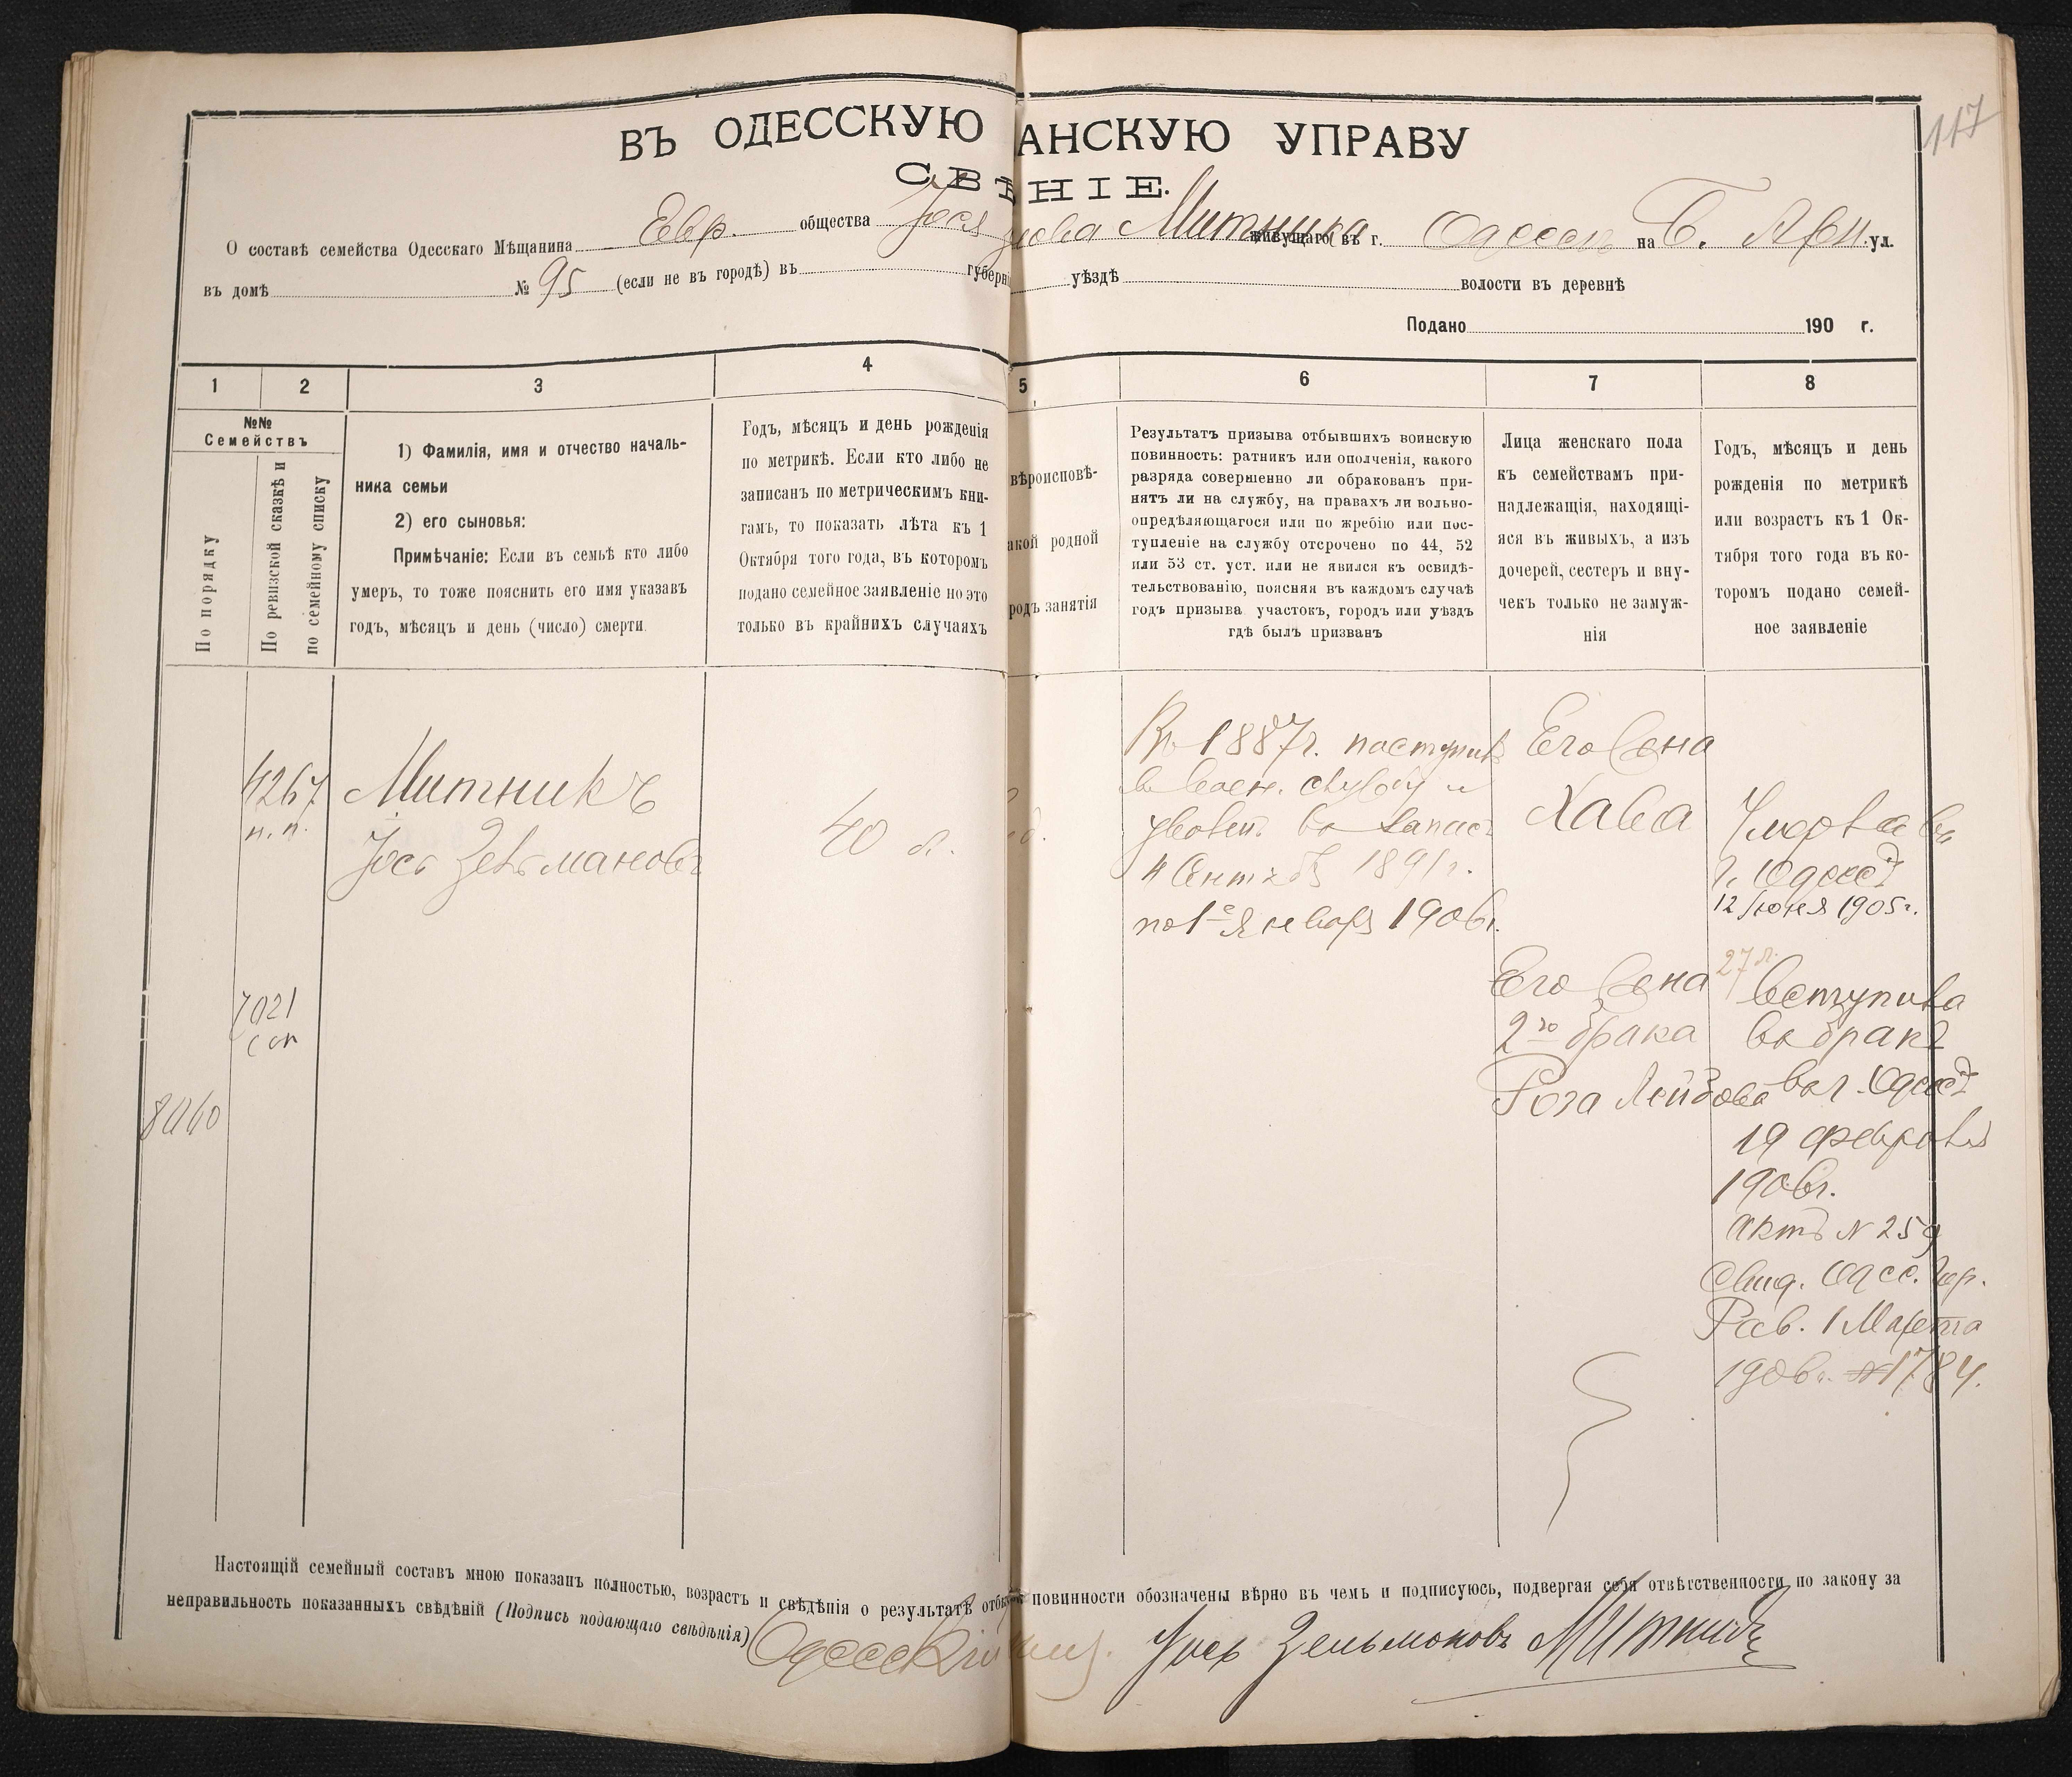 117
ВЪ ОДЕССКУЮ АНСКУЮ УПРАВУ
СВѢНІЕ.
О составѣ семейства Одесскаго Мѣщанина Евр. общества Іося Митника живущаго въ г. Одессѣ на ул.
въ домѣ № 95 (если не въ городѣ) въ губерні уѣздѣ волости въ деревнѣ
Подано 190 г.
1 2 3 4 5 6 7 8
№№
Семействъ
По порядку
По ревизской сказкѣ и
по семейному списку
1) Фамилія, имя и отчество началь-
ника семьи
2) его сыновья:
Примѣчаніе: Если въ семьѣ кто либо
умеръ, то тоже пояснить его имя указавъ
годъ, мѣсяцъ и день (число) смерти.
Годъ, мѣсяцъ и день рожденія
по метрикѣ. Если кто либо не
записанъ по метрическимъ кни-
гамъ, то показать лѣта къ 1
Октября того года, въ которомъ
подано семейное заявленіе но это
только въ крайнихъ случаяхъ
вѣроисповѣ-
акой родной
родъ занятія
Результатъ призыва отбывшихъ воинскую
повинность: ратникъ или ополченія, какого
разряда совершенно ли обракованъ при-
нятъ ли на службу, на правахъ ли вольно-
опредѣляющагося или по жребію или пос-
тупленіе на службу отсрочено по 44, 52
или 53 ст. уст. или не явился къ освидѣ-
тельствованію, поясняя въ каждомъ случаѣ
годъ призыва участокъ, городъ или уѣздъ
гдѣ былъ призванъ
Лица женскаго пола
къ семействамъ при-
надлежащія, находящі-
яся въ живыхъ, а изъ
дочерей, сестеръ и вну-
чекъ только не замуж-
нія
Годъ, мѣсяцъ и день
рожденія по метрикѣ
или возрастъ къ 1 Ок-
тября того года въ ко-
торомъ подано семей-
ное заявленіе
4267
п. п.
7021
сп
8060
Митникъ
Іось Зельмановъ
40 л.
Въ 1887г. поступилъ
въ воен. службу и
уволен. въ запасъ
4 Сентяб 1891г.
по 1е Января 1906г.
Его жена
Хава
Умерла въ
г. Одессѣ
12 Іюня 1905г.
Его жена
2го брака
Роза Лейзова
27 л.
вступила
въ бракъ
въ г. Одессѣ
19 февраля
1906г.
актъ № 259
Свид. Одесс. Гор.
Рав. 1 Марта
1906г. № 1784.
Настоящій семейный составъ мною показанъ полностью, возрастъ и свѣдѣнія о результатѣ отбы повинности обозначены вѣрно въ чемъ и подписуюсь, подвергая себя отвѣтственности по закону за
неправильность показанныхъ свѣдѣній (Подпись подающаго свѣдѣнія) Одесскій Іось Зельмоновъ Митникъ